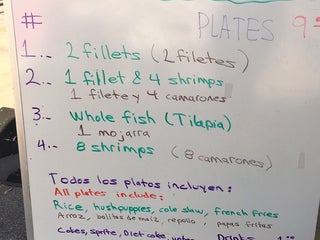 # PLATES 9
1... 2 fillets (2 filetes)
2... 1 fillet & 4 shrimps
1 filete y 4 camarones
3.- Whole fish (Tilapia)
1 mojarra
4.- 8 shrimps (8 camarones)
Todos los platos incluyen:
All plates include:
Rice, hushpuppies, cole slaw, french fries
Arroz, bolitas de maiz, repollo, papas fritas
Cokes, sprite, Diet coke,
Drinks